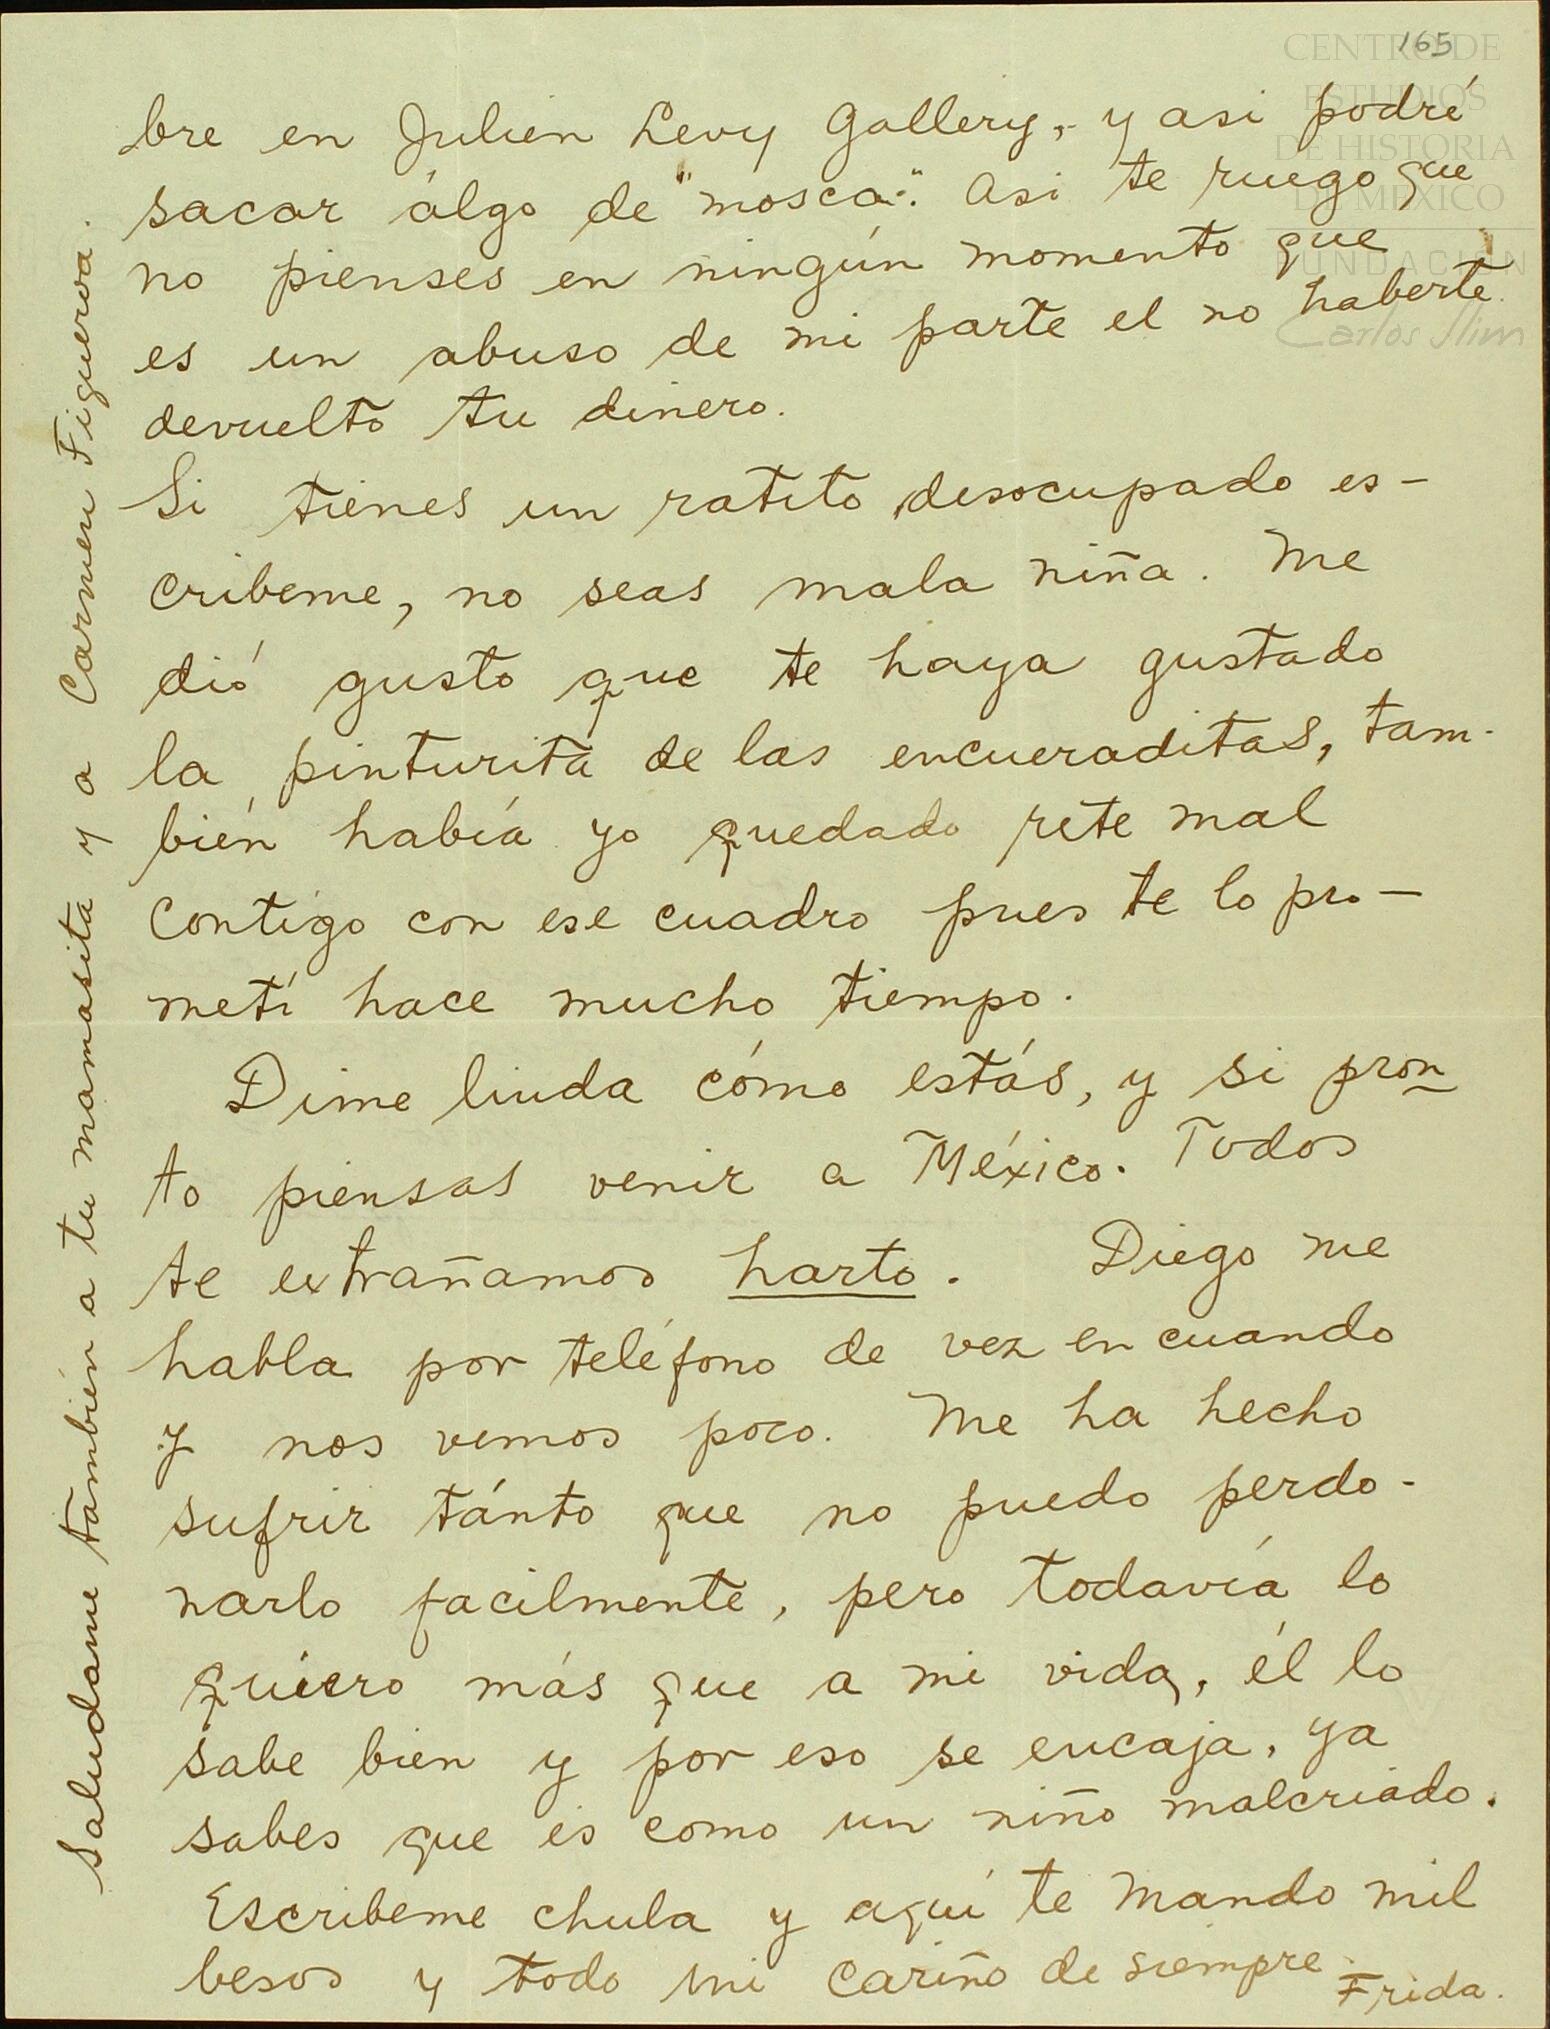 165
CENTRO DE
ESTUDIOS
DE HISTORIA
DE MÉXICO
FUNDACIÓN
Carlos Slim
bre en Julien Levy Gallery, y asi podré
sacar álgo de "mosca". Asi te ruego que
no pienses en ningún momento que
es un abuso de mi parte el no haberte
devuelto tu dinero.
Si tienes un ratito desocupado es-
cribeme, no seas mala niña. Me
dió gusto que te haya gustado
la pinturita de las encueraditas, tam-
bién había yo quedado rete mal
contigo con ese cuadro pues te lo pro-
metí hace mucho tiempo.
Dime linda cómo estás, y si pron
to piensas venir a México. Todos
te extrañamos harto. Diego me
habla por teléfono de vez en cuando
y nos vemos poco. Me ha hecho
sufrir tánto que no puedo perdo-
narlo facilmente, pero todavía lo
quiero más que a mi vida, él lo
sabe bien y por eso se encaja, ya
sabes que es como un niño malcriado.
Escribeme chula y aquí te mando mil
besos y todo mi cariño de siempre.
Frida.
Saludame también a tu mamasita y a Carmen Figueroa.